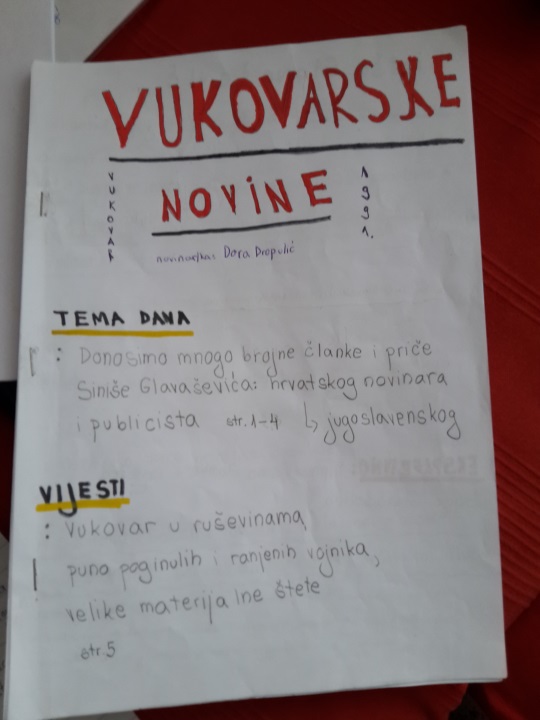 VUKOVARSKE
VUKOVAR
NOVINE
1991.
novinarka: Dora Dropulić
TEMA DANA
: Donosimo mnogo brojne članke i priče
Siniše Glavaševića: hrvatskog novinara
i publicista str. 1-4 ↳ jugoslavenskog
VIJESTI
: Vukovar u ruševinama,
puno poginulih i ranjenih vojnika,
velike materijalne štete
str. 5